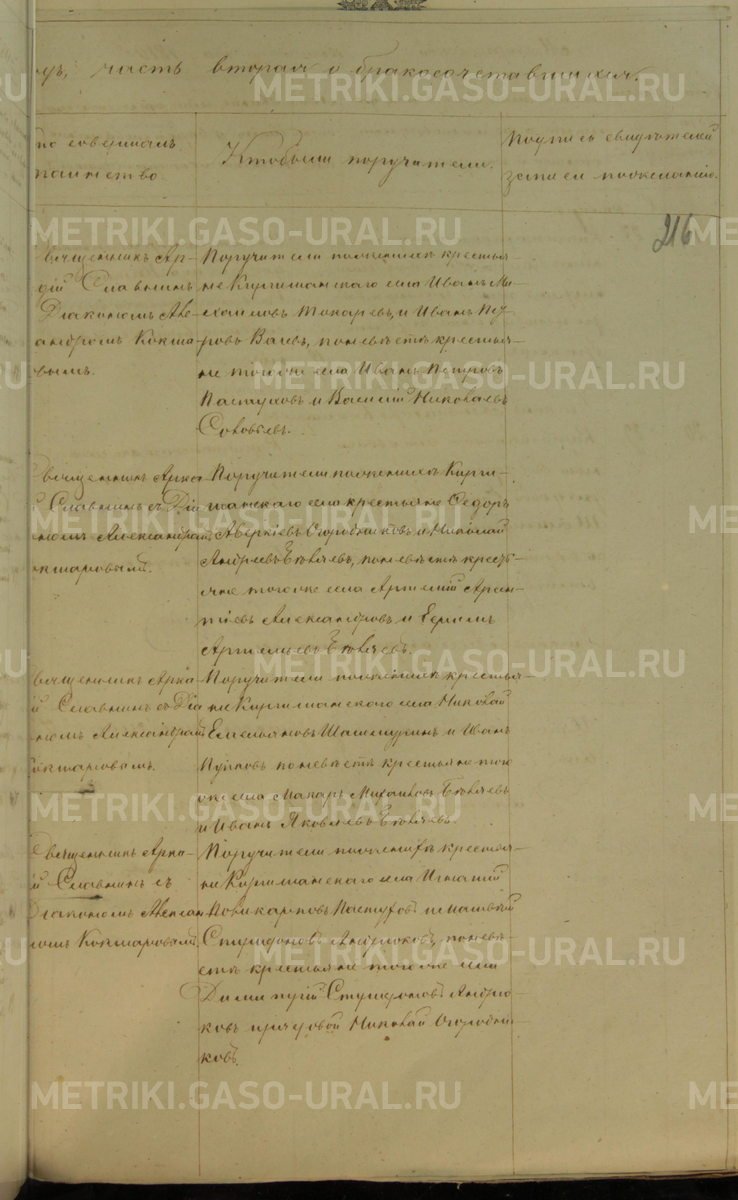 одъ, часть вторая о бракосочетавшихся.
то совершалъ
таинство.
Кто были поручители.
Подпись свидѣтелей
записи по желанію.
216
Священникъ Ар-
дій Славнинъ
Діакономъ Але-
андромъ Кокша-
вымъ.
Поручители по женихѣ крестья-
не Киргишанскаго села Иванъ Ми-
хаиловъ Токаревъ, и Иванъ Пет-
ровъ, по невѣстѣ крестья-
не того же села Иванъ Петровъ
Пастуховъ и Василій Николаевъ
Соловьевъ.
Священникъ Арка-
Славнинъ съ Діа
номъ Александромъ
кшаровымъ.
Поручители по женихѣ Кирги-
шанскаго села крестьяне Федоръ
Аверкіевъ Огородниковъ и Николай
Андреевъ Бѣляевъ, по невѣстѣ кресть-
яне того же села Артемій Арсен-
тіевъ Александровъ и Ефимъ
Артемьевъ Бѣляевъ.
вященникъ Арка
й Славнинъ съ Діа
номъ Александромъ
окшаровымъ.
Поручители по женихѣ крестья-
не Киргишанскаго села Николай
Емельяновъ Шашмуринъ и Иванъ
по невѣстѣ крестьяне того
же села Макаръ Михаиловъ Бѣляевъ
и Иванъ Яковлевъ Бѣляевъ.
Священникъ Арка-
й Славнинъ съ
Діакономъ Алексан
ромъ Кокшаровымъ.
Поручители по женихѣ крестья-
не Киргишанскаго села Игнатій
Поликарповъ Пастуховъ и
Спиридоновъ Андрюковъ, по невѣ-
стѣ крестьяне того же села
Спиридоновъ Андрю-
ковъ и Николай Огородни-
ковъ.
METRIKI.GASO-URAL.RU